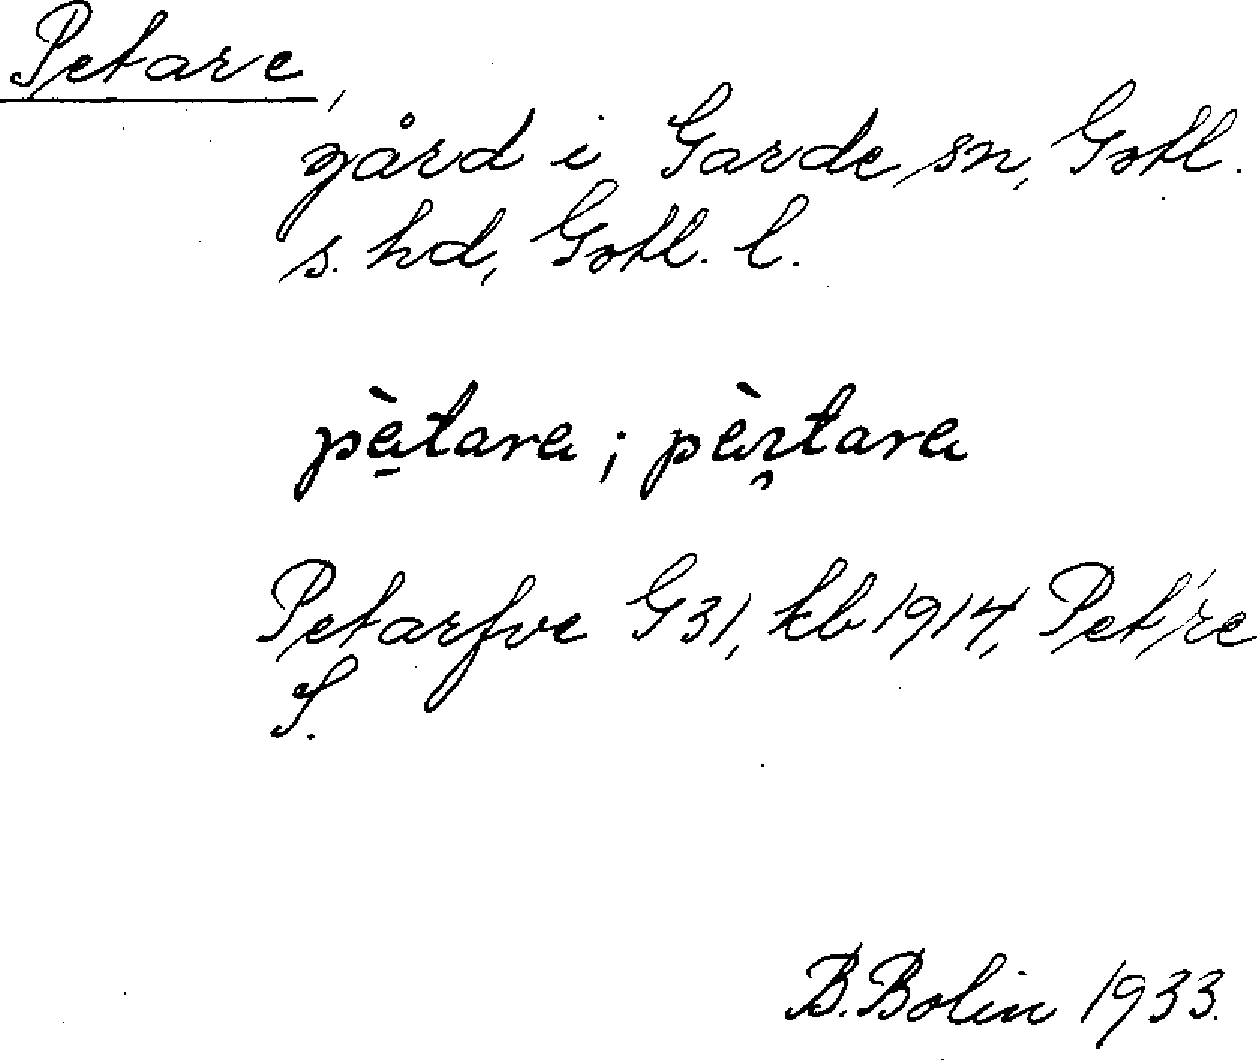 Petare,
gård i Garde sn, Gotl.
s. hd, Gotl. l.
pètara; pèrtara
Petarfve G31, kb 1914, Pet're
S.
B. Bolin 1933.